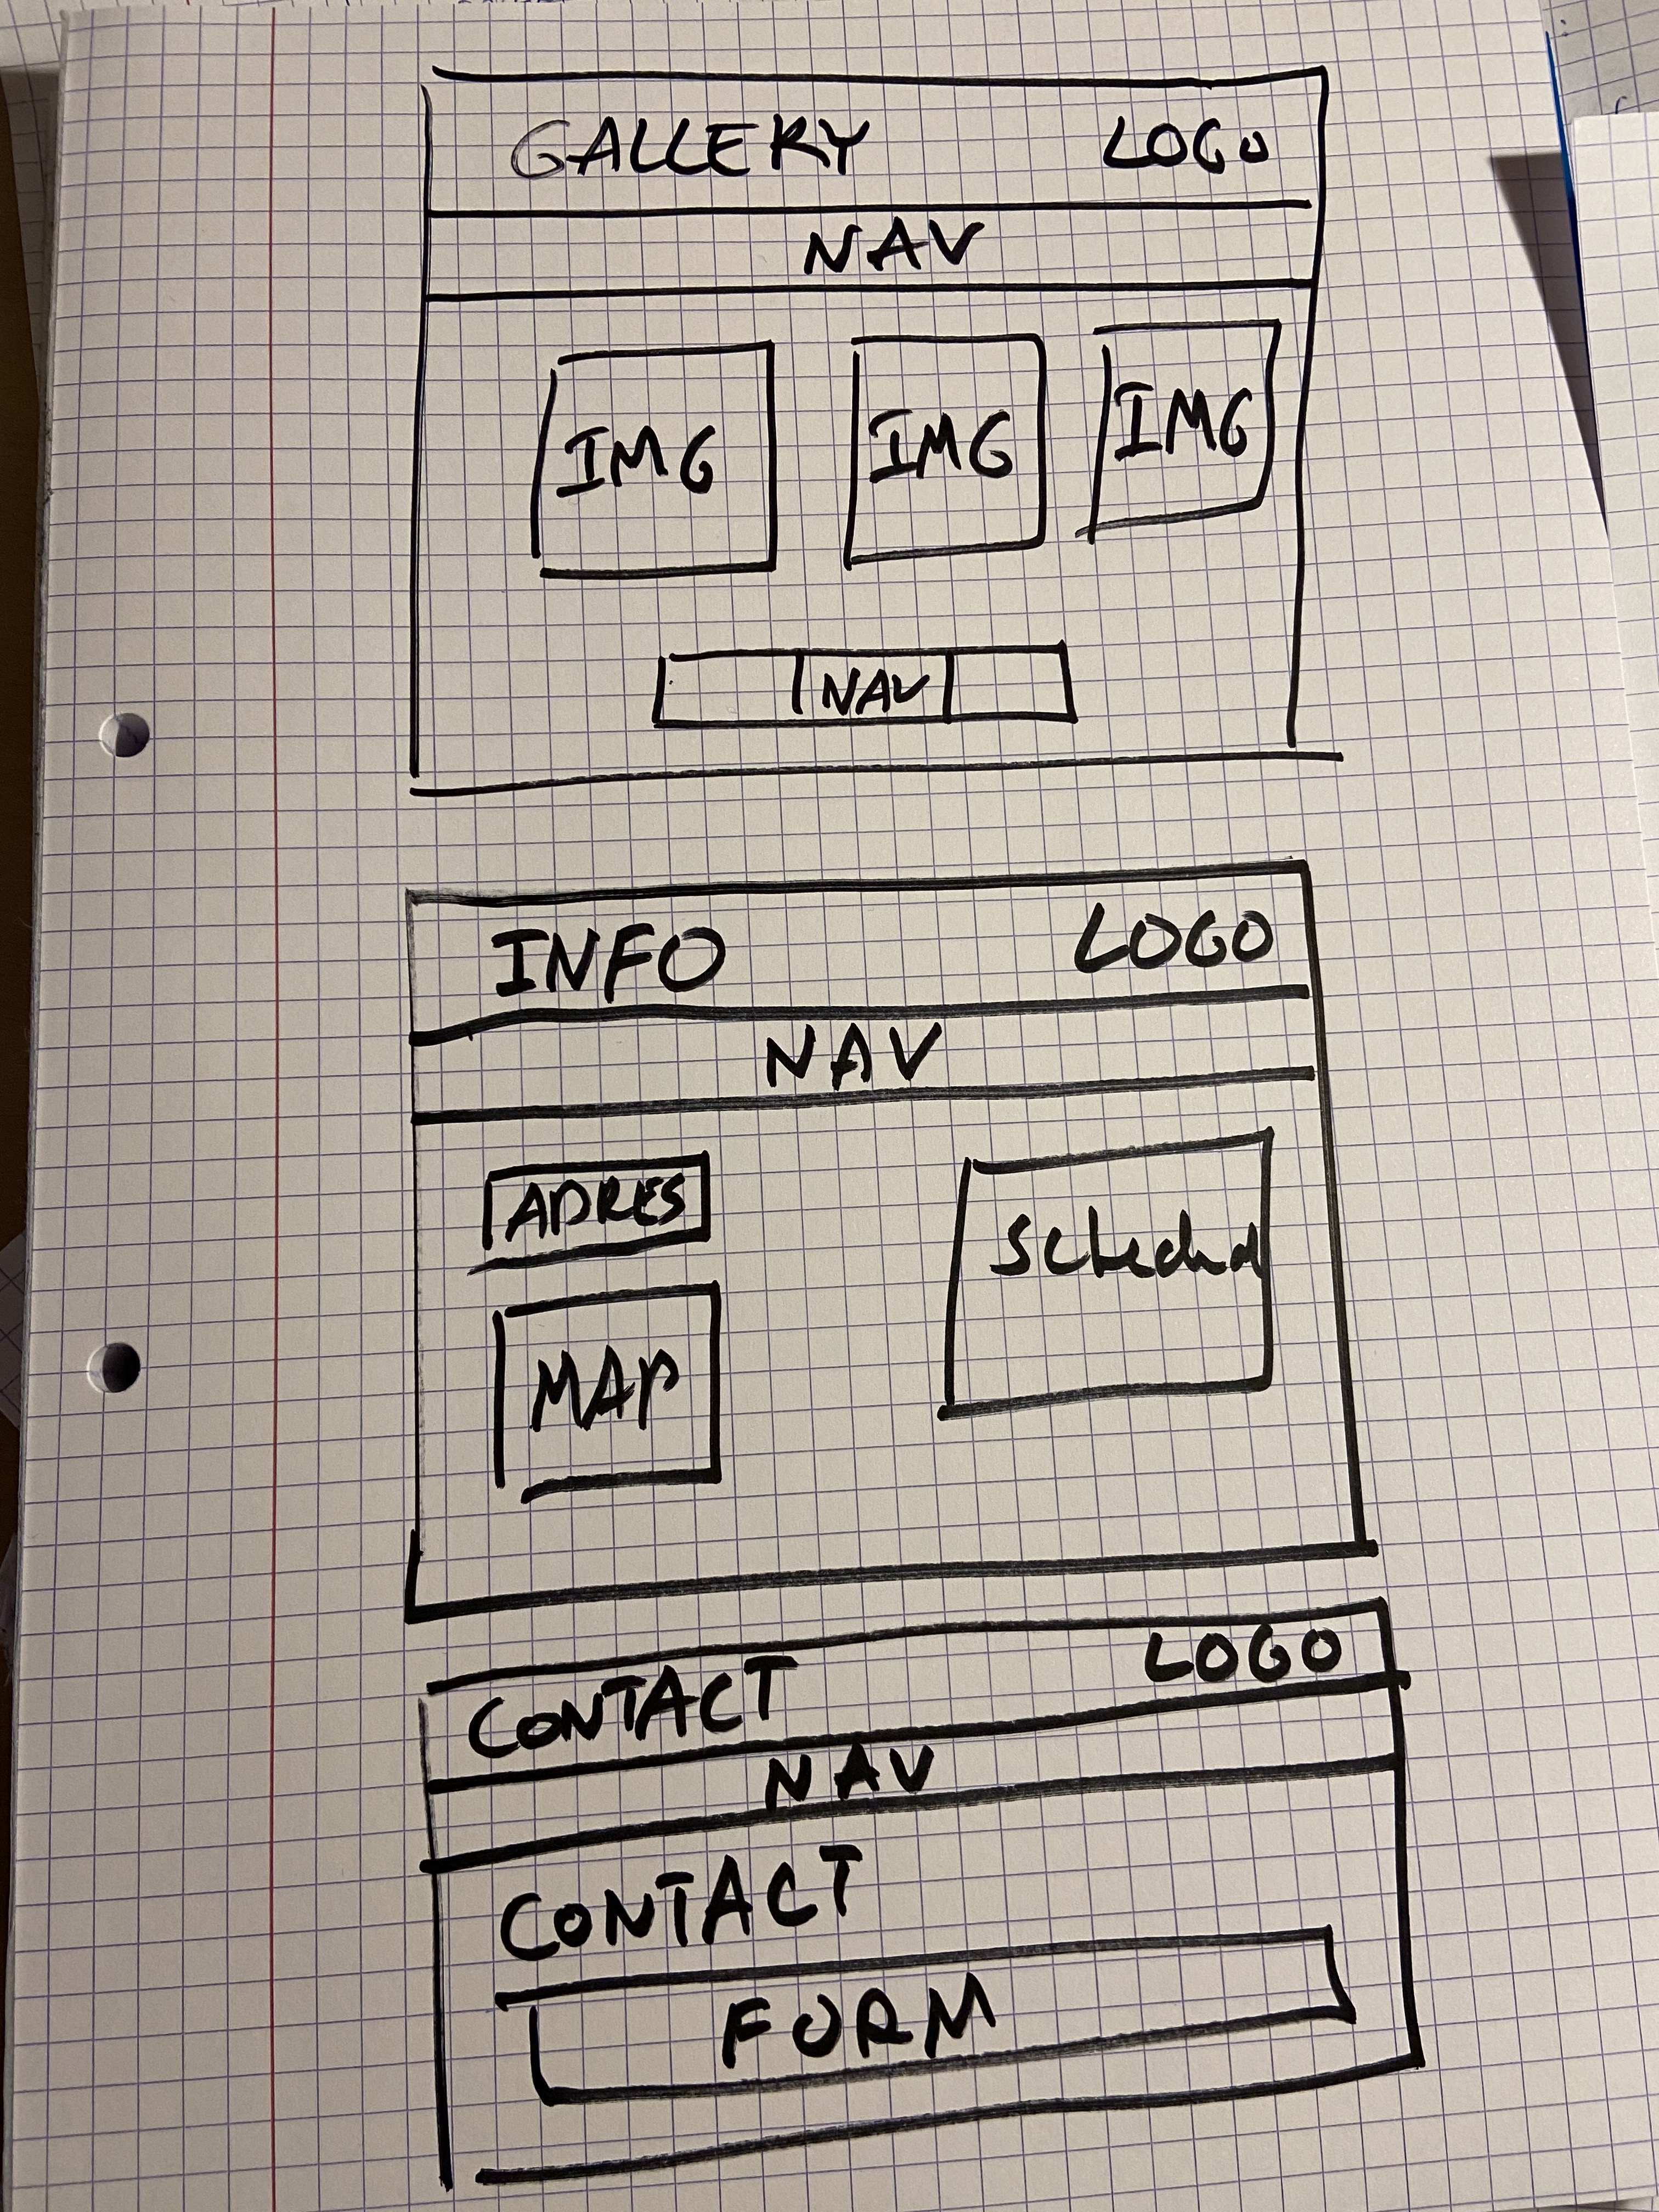 GALLERY LOGO
NAV
IMG IMG IMG
NAV
INFO LOGO
NAV
ADRES
MAP
CONTACT LOGO
NAV
CONTACT
FORM